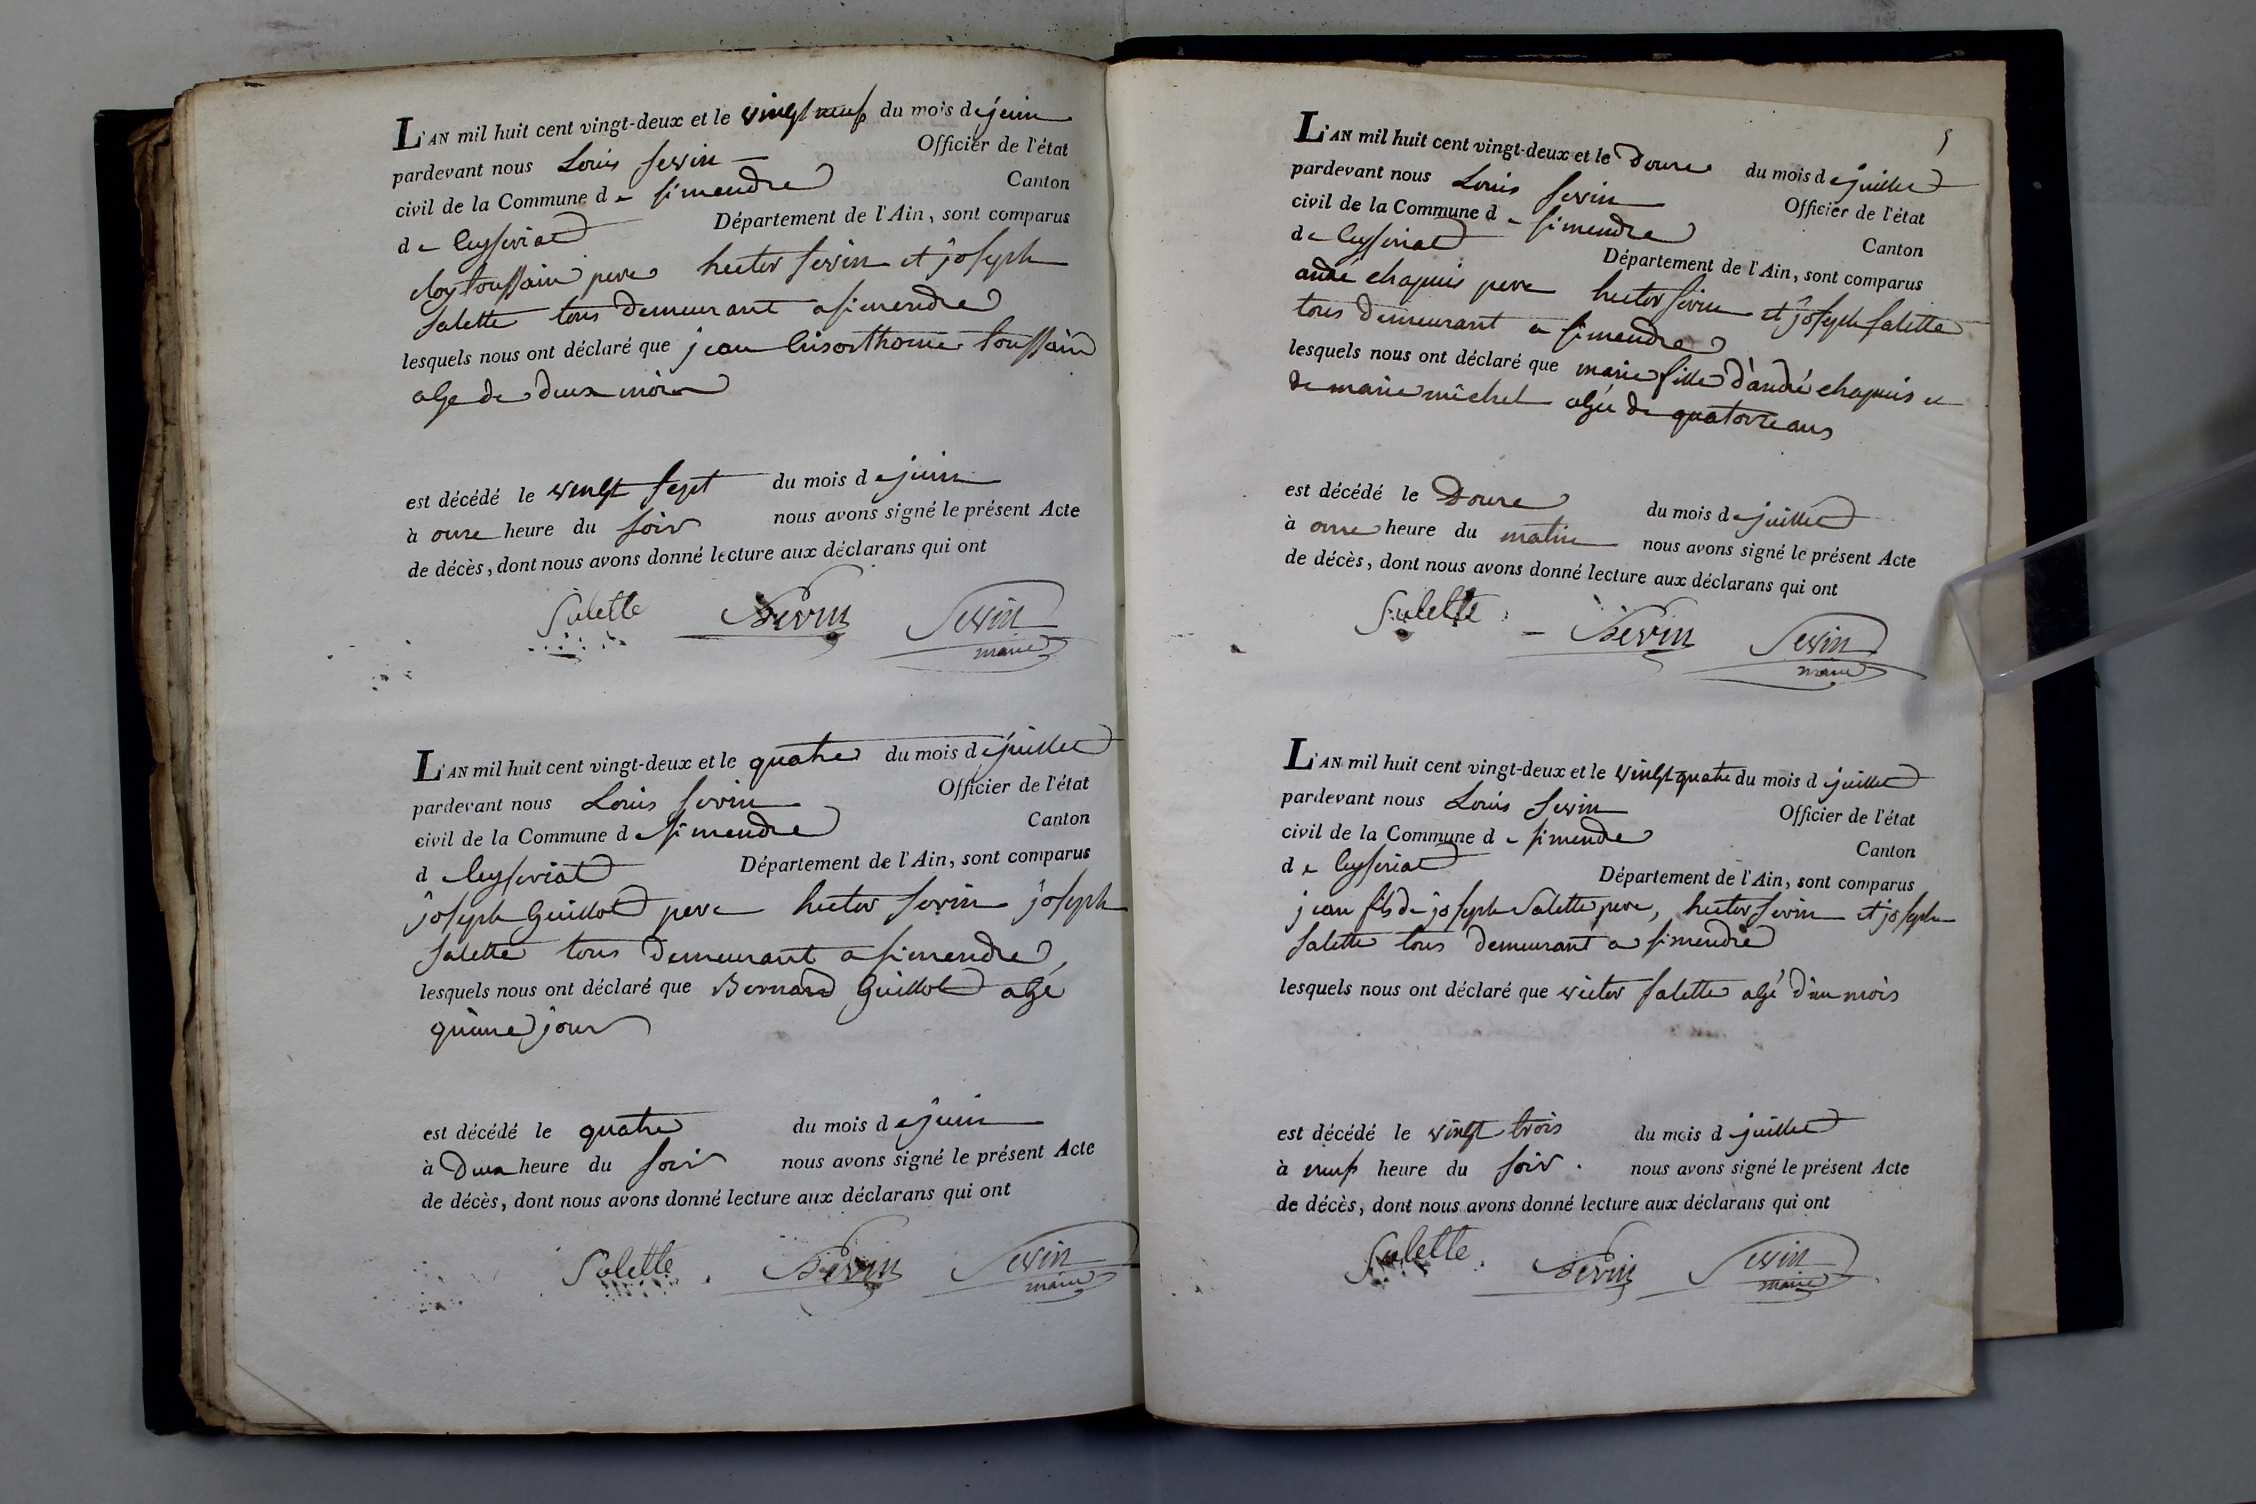 L'AN mil huit cent vingt-deux et le vingt neuf du mois de juin
pardevant nous Louis sevin Officier de l'état
civil de la Commune de simendre Canton
de Ceyseriat Département de l'Ain, sont comparus
eloy toussain pere hector sevin et joseph
salette tous demeurant a simendre
lesquels nous ont déclaré que jean toussain
age de deux mois
est décédé le vingt sept du mois de juin
à onze heure du soir nous avons signé le présent Acte
de décès, dont nous avons donné lecture aux déclarans qui ont
Salette Sevin Sevin
maire
L'AN mil huit cent vingt-deux et le quatre du mois de juillet
pardevant nous Louis sevin Officier de l'état
civil de la Commune de simendre Canton
d Ceyseriat Département de l'Ain, sont comparus
joseph Guillot pere hector sevin joseph
salette tous demeurant a simendre,
lesquels nous ont déclaré que Bernard Guillot agé
quinze jour
est décédé le quatre du mois de juin
à Deux heure du soir nous avons signé le présent Acte
de décès, dont nous avons donné lecture aux déclarans qui ont
Salette. Sevin Sevin
maire
5
L'AN mil huit cent vingt-deux et le Douze du mois de juillet
pardevant nous Louis sevin Officier de l'état
civil de la Commune de simendre Canton
de Ceyseriat Département de l'Ain, sont comparus
andé chapuis pere hector sevin et joseph salette
tous demeurant a simendre
lesquels nous ont déclaré que marie fille d'andré chapuis et
de marie michel agée de quatorze ans
est décédé le Douze du mois de juillet
à onze heure du matin nous avons signé le présent Acte
de décès, dont nous avons donné lecture aux déclarans qui ont
Salette Sevin Sevin
maire
L'AN mil huit cent vingt-deux et le vingt quatre du mois d juillet
pardevant nous Louis sevin Officier de l'état
civil de la Commune de simendre Canton
de Ceyseriat Département de l'Ain, sont comparus
jean fils de joseph Salette pere, hector sevin et joseph
salette tous demeurant a simendre
lesquels nous ont déclaré que victor salette agé d'un mois
est décédé le vingt trois du mois d juillet
à neuf heure du soir. nous avons signé le présent Acte
de décès, dont nous avons donné lecture aux déclarans qui ont
Salette. Sevin Sevin
maire